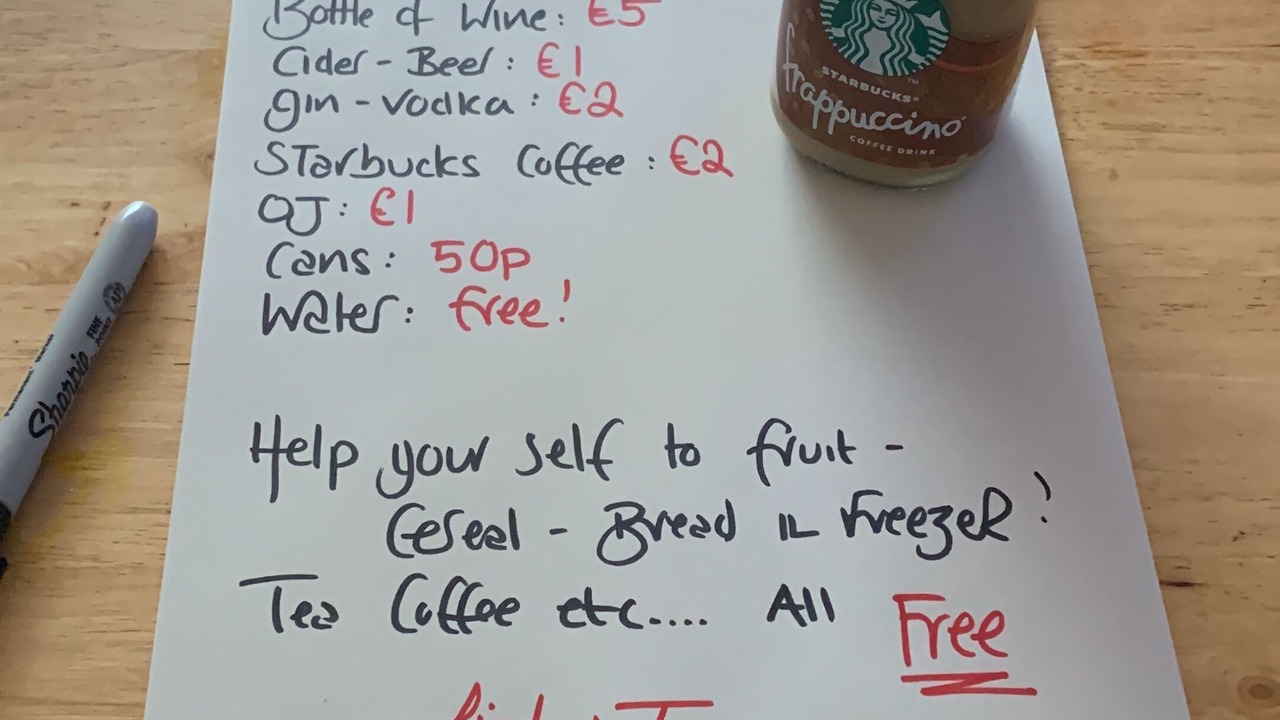 Bottle of Wine: €5
Cider - Beer: €1
gin - vodka: €2
STarbucks Coffee: €2
OJ: €1
Cans: 50p
Water: free!
Help your self to fruit -
Cereal - Bread in Freezer!
Tea Coffee etc.... All Free
STARBUCKS
frappuccino
COFFEE DRINK
Sharpie
FINE POINT
AP